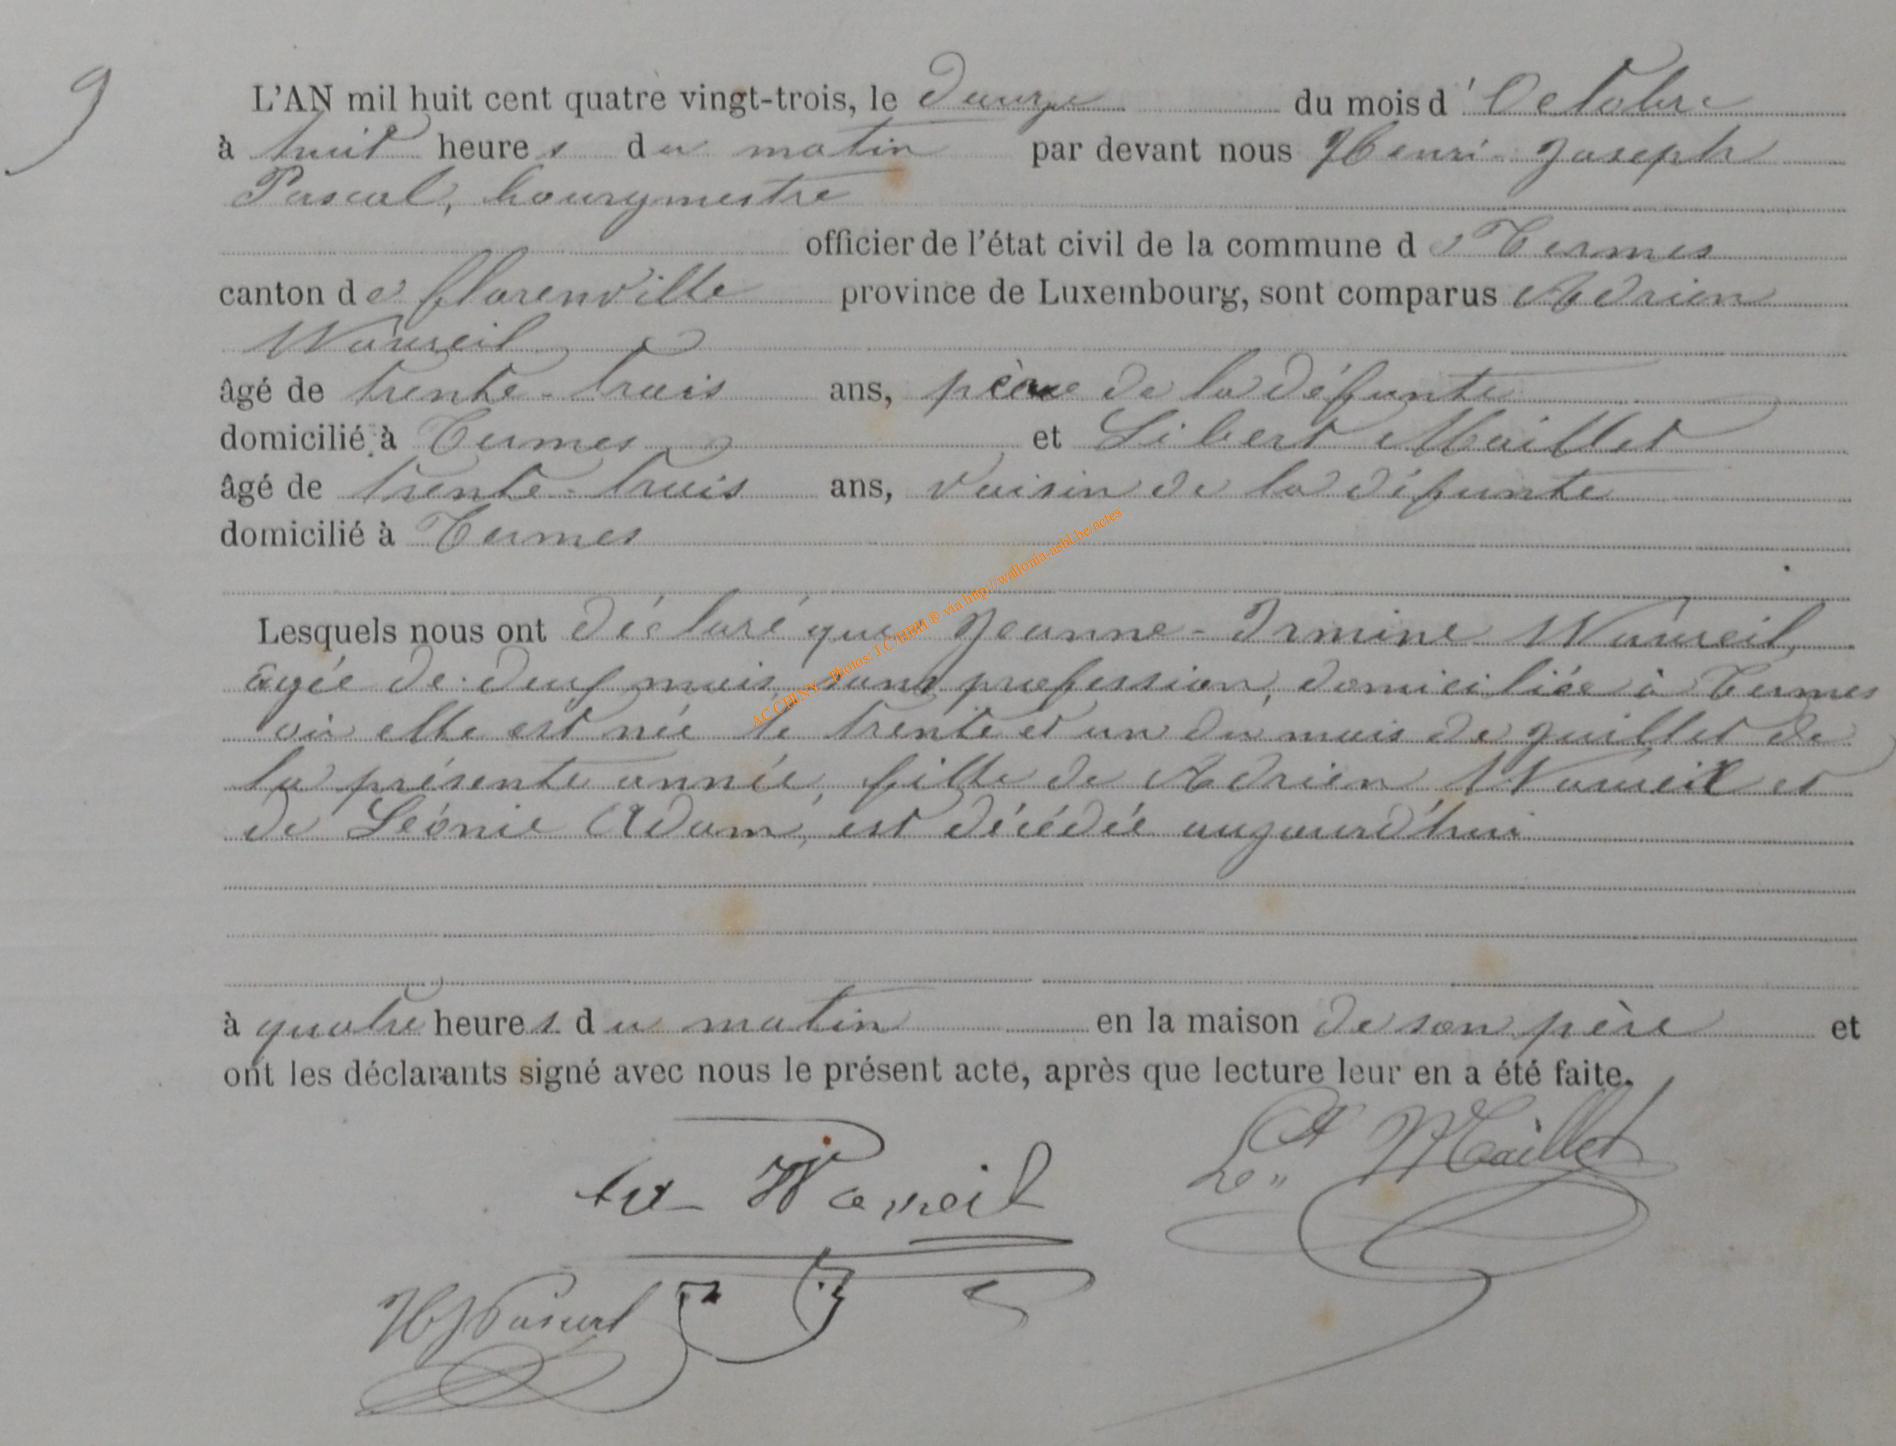 9
L'AN mil huit cent quatre vingt-trois, le douze du mois d'Octobre
à huit heures du matin par devant nous Henri-Joseph
Pascal, bourgmestre
officier de l'état civil de la commune de Termes
canton de Florenville province de Luxembourg, sont comparus Adrien
Waweil
âgé de trente-trois ans, père de la défunte
domicilié à Termes et Libert Maillet
âgé de trente-trois ans, voisin de la défunte
domicilié à Termes
AC CHINY - Photos: J C HBH ® via http://wallonia-asbl.be/actes
Lesquels nous ont déclaré que Jeanne-Irmine Waweil,
âgée de deux mois, sans profession, domiciliée à Termes
où elle est née le trente et un du mois de Juillet de
la présente année, fille de Adrien Waweil et
de Léonie Adam, est décédée aujourd'hui
à quatre heures du matin en la maison de son père et
ont les déclarants signé avec nous le présent acte, après que lecture leur en a été faite.
Maillet
Waweil
HJ Pascal